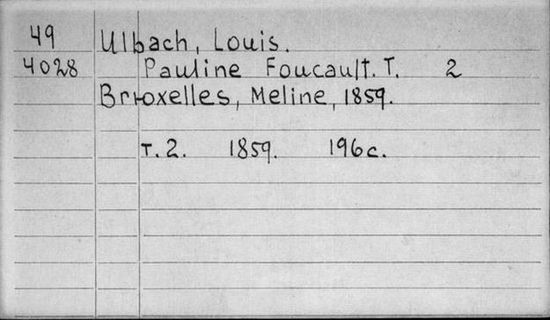 49 Ulbach, Louis.
4028 Pauline Foucault. T. 2
Bruxelles, Meline, 1859.
T. 2. 1859. 196 c.